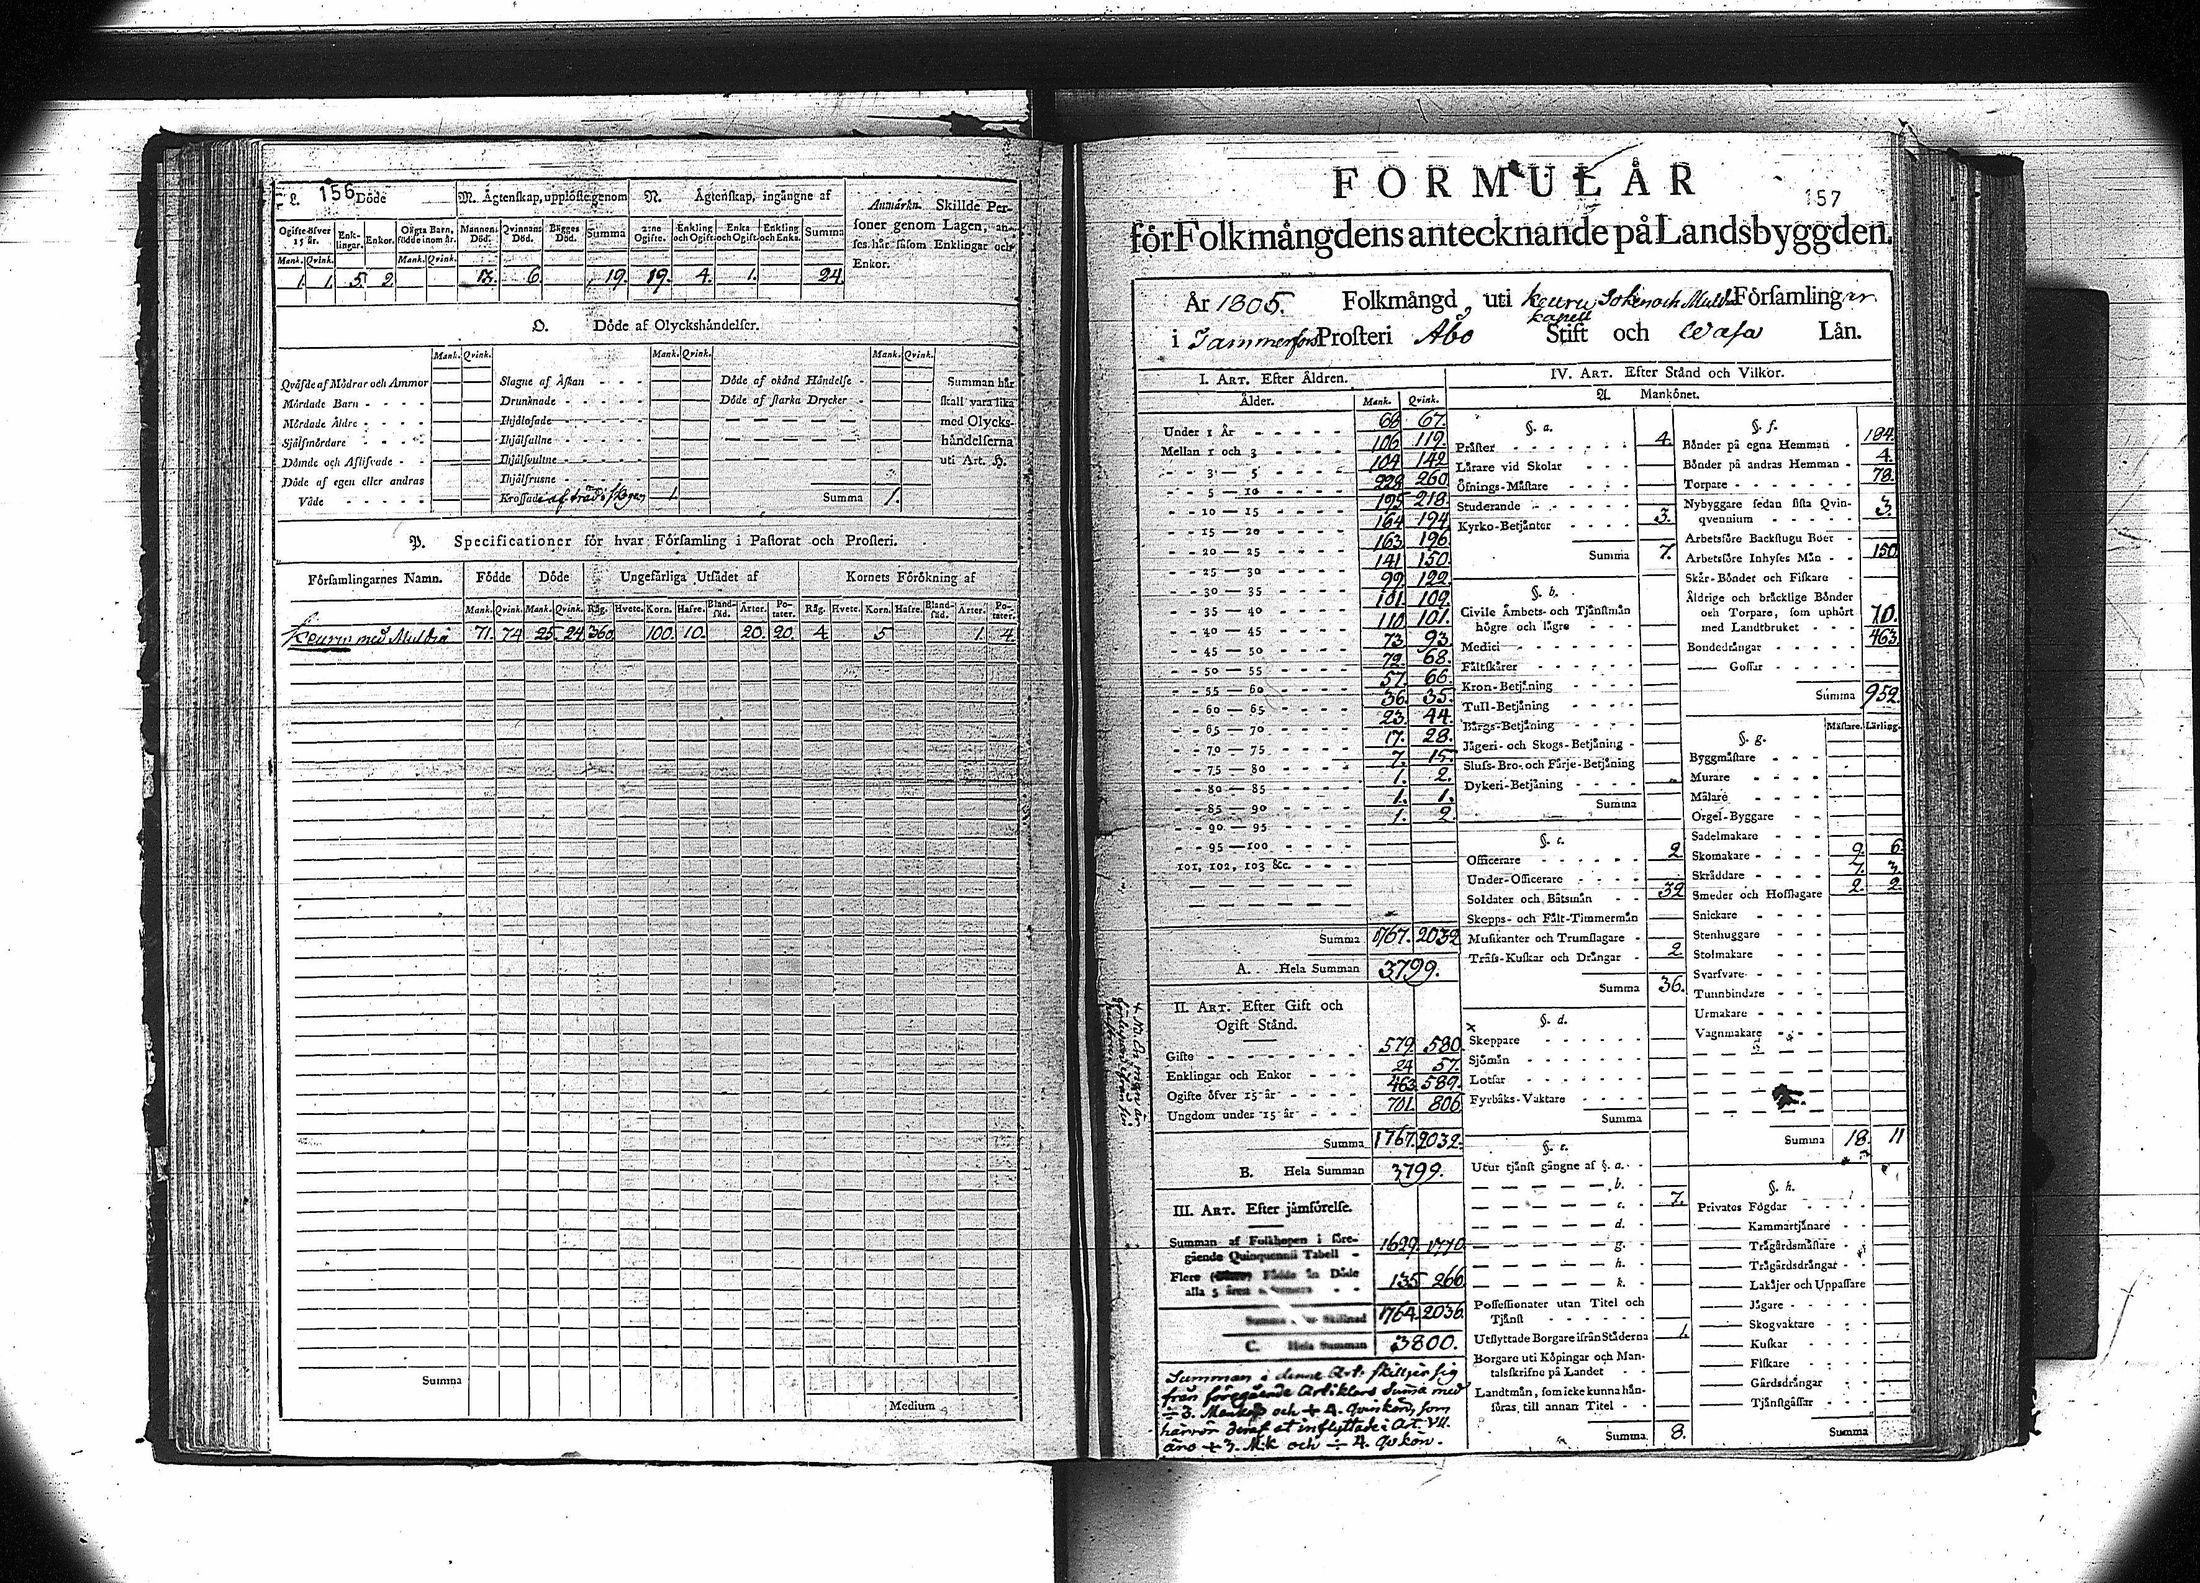 L. 156 Döde
M. Ägtenskap, upplöste genom
N. Ägtenskap, ingångne af
Anmärkn. Skillde Personer genom Lagen, anses här såsom Enklingar och Enkor.
Ogifte öfver 15 år. Enklingar. Enkor. Oägta Barn, födde inom år. Mannens Död. Qvinnans Död. Bägges Död. Summa 2:ne Ogifte. Enkling och Ogift. Enka och Ogift. Enkling och Enka. Summa
Mank. Qvink. Mank. Qvink.
1. 1. 5. 2. 13. 6. 19. 19. 4. 1. 24.
O. Döde af Olyckshändelser.
Mank. Qvink. Mank. Qvink. Mank. Qvink.
Qväfde af Mödrar och Ammor
Mördade Barn
Mördade Äldre
Sjålfmördare
Dömde och Aflifvade
Döde af egen eller andras
Våde
Slagne af Åskan
Drunknade
Ihjälosade
Ihjälfallne
Ihjälsvultne
Ihjälfrusne
Krossade af träd i skogen 1.
Döde af okänd Händelse
Döde af starka Drycker
Summa 1.
Summan här
skall vara lika
med Olycks-
händelserna
uti Art. H.
P. Specificationer för hvar Församling i Pastorat och Prosteri.
Församlingarnes Namn. Födde Döde Ungefärliga Utsädet af Kornets Förökning af
Mank. Qvink. Mank. Qvink. Råg. Hvete. Korn. Hafre. Blandsäd. Ärter. Potater. Råg. Hvete. Korn. Hafre. Blandsäd. Ärter. Potater.
Keuru med Muldia 71. 74 25 24 360 100. 10. 20. 20. 4. 5 1. 4.
Summa
Medium
FORMULÄR
157
för Folkmängdens antecknande på Landsbyggden.
År 1805. Folkmängd, uti Keuru Soken och Muldia kapell Församlingar
i Tammerfors Prosteri Åbo Stift och Wasa Län.
I. ART. Efter Åldren.
Ålder. Mank. Qvink.
Under 1 År 68 67.
Mellan 1 och 3 106 119.
3 — 5 104 142
5 — 10 228 260
10 — 15 195 218.
15 — 20 164 194
20 — 25 163 196
25 — 30 141 150.
30 — 35 99. 122.
35 — 40 101. 109.
40 — 45 110 101.
45 — 50 73. 93.
50 — 55 72. 68.
55 — 60 57. 66.
60 — 65 36. 35.
65 — 70 23. 44.
70 — 75 17. 28.
75 — 80 7. 15.
80 — 85 1. 2.
85 — 90 1. 1.
90 — 95 1. 2
95 — 100
101, 102, 103 &c.
Summa 1767. 2032
A. Hela Summan 3799.
II. ART. Efter Gift och
Ogift Stånd.
Gifte 579. 580.
Enklingar och Enkor 24 57.
Ogifte öfver 15 år 463. 589.
Ungdom under 15 år 701. 806
Summa 1767. 2032.
B. Hela Summan 3799.
III. ART. Efter jämförelse.
Summan af Folkhopen i före-
gående Quinquennii Tabell 1629. 1770
Flere Födde än Döde
alla 5 åren 135 266
Summa Skillnad 1764. 2036
C. Hela Summan 3800.
Summan i denne Art. skilljer sig
från föregående Artiklars Suma med
÷ 3. Mank. och + 4. qvinkön, som
härrör deraf at inflyttade i Art. VII.
äro + 3. M.k och ÷ 4. qvkön.
IV. ART. Efter Stånd och Vilkor.
A. Mankönet.
§. a.
Präster 4.
Lärare vid Skolar
Öfnings-Mästare
Studerande
Kyrko-Betjänter 3.
Summa 7.
§. b.
Civile Ämbets- och Tjänstmän
högre och lägre
Medici
Fältskärer
Kron-Betjäning
Tull-Betjäning
Bärgs-Betjäning
Jägeri- och Skogs-Betjäning
Sluss- Bro- och Färje-Betjäning
Dykeri-Betjäning
Summa
§. c.
Officerare 2.
Under-Officerare
Soldater och Båtsmän 32
Skepps- och Fält-Timmermän
Musikanter och Trumslagare
Träss-Kuskar och Drängar 2.
Summa 36.
§. d.
Skeppare
Sjömän
Lotsar
Fyrbåks-Vaktare
Summa
§. e.
Utur tjänst gångne af §. a.
b.
c. 7.
d.
g.
h.
k.
Possessionater utan Titel och
Tjänst
Utflyttade Borgare ifrån Städerna 1.
Borgare uti Köpingar och Man-
talsskrifne på Landet
Landtmän, som icke kunna hän-
föras, till annan Titel
Summa 8.
§. f.
Bönder på egna Hemman 184.
Bönder på andras Hemman 4.
Torpare 78.
Nybyggare sedan sista Qvin-
qvennium 3.
Arbetsföre Backstugu Boer
Arbetsföre Inhyses Män 150
Skär-Bönder och Fiskare
Äldrige och bräcklige Bönder
och Torpare, som uphört
med Landtbruket 70.
Bondedrängar 463
— Gossar
Summa 952.
Mästare. Lärling.
§. g.
Byggmästare
Murare
Målare
Orgel-Byggare
Sadelmakare
Skomakare 9. 6
Skräddare 7. 3.
Smeder och Hofslagare 2. 2.
Snickare
Stenhuggare
Stolmakare
Svarfvare
Tunnbindare
Urmakare
Vagnmakare
Summa 18. 11
§. h.
Privates Fogdar
— Kammartjänare
— Trägårdsmästare
— Trägårdsdrängar
— Lakäjer och Uppassare
— Jägare
— Skogvaktare
— Kuskar
— Fiskare
— Gårdsdrängar
— Tjänstgässar
Summa